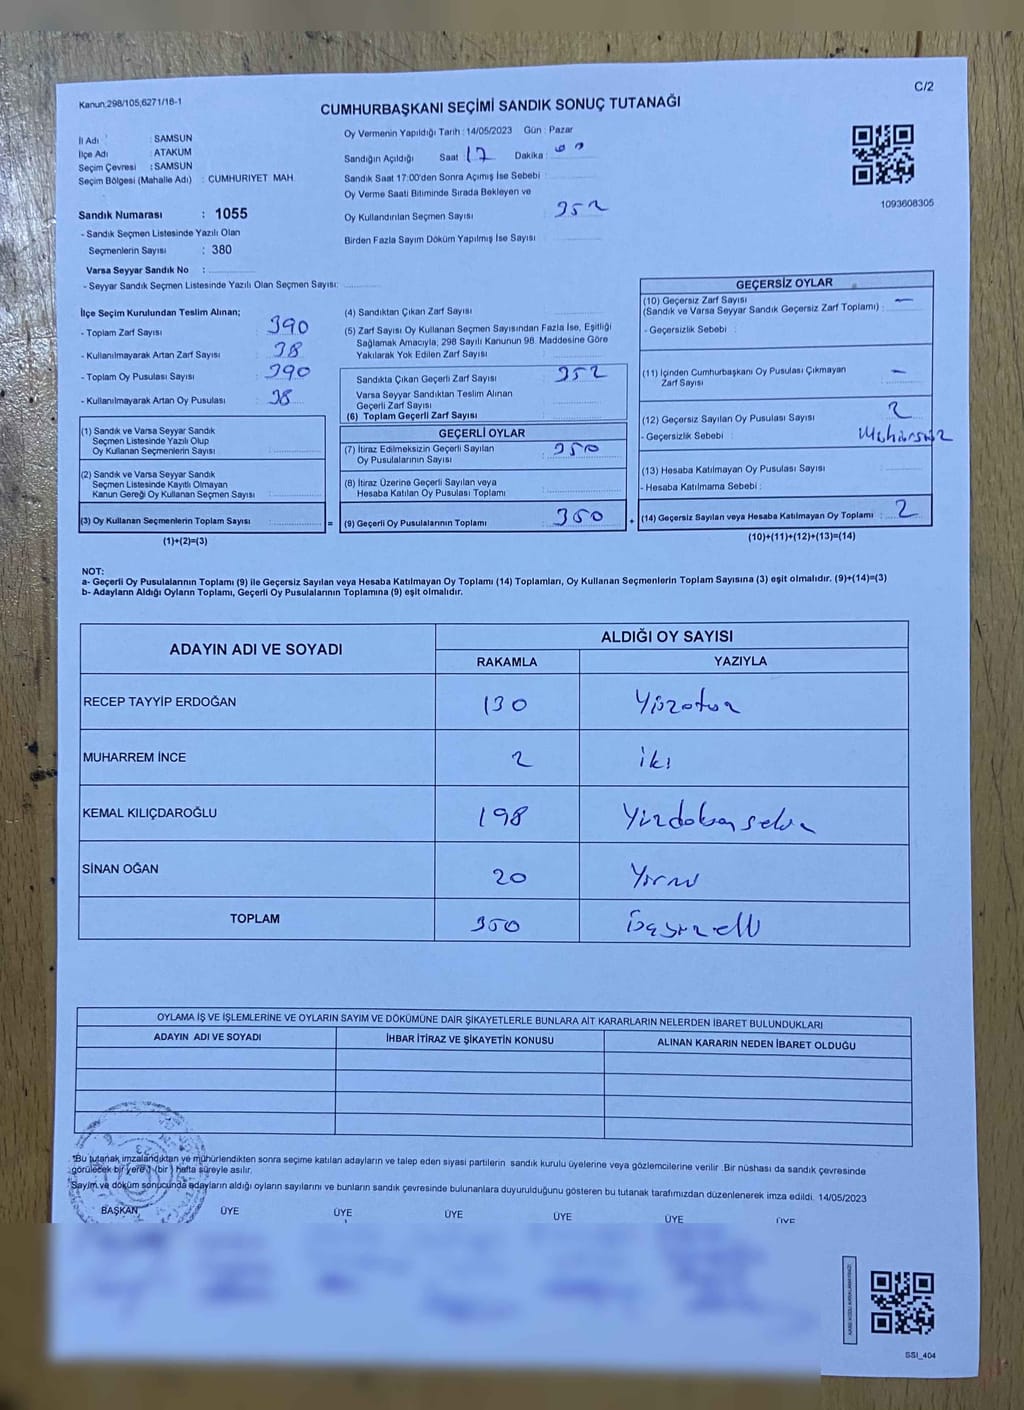 Kanun,298/105,6271/18-1
C/2
CUMHURBAŞKANI SEÇİMİ SANDIK SONUÇ TUTANAĞI
İl Adı : SAMSUN
İlçe Adı : ATAKUM
Seçim Çevresi : SAMSUN
Seçim Bölgesi (Mahalle Adı) : CUMHURIYET MAH.
Sandık Numarası : 1055
- Sandık Seçmen Listesinde Yazılı Olan
Seçmenlerin Sayısı : 380
Varsa Seyyar Sandık No :
- Seyyar Sandık Seçmen Listesinde Yazılı Olan Seçmen Sayısı:
Oy Vermenin Yapıldığı Tarih : 14/05/2023 Gün : Pazar
Sandığın Açıldığı Saat : 17 Dakika :
Sandık Saat 17:00'den Sonra Açımış İse Sebebi :
Oy Verme Saati Bitiminde Sırada Bekleyen ve
Oy Kullandırılan Seçmen Sayısı 352
Birden Fazla Sayım Döküm Yapılmış İse Sayısı
1093608305
İlçe Seçim Kurulundan Teslim Alınan;
- Toplam Zarf Sayısı : 390
- Kullanılmayarak Artan Zarf Sayısı : 38
- Toplam Oy Pusulası Sayısı : 390
- Kullanılmayarak Artan Oy Pusulası : 38
(1) Sandık ve Varsa Seyyar Sandık
Seçmen Listesinde Yazılı Olup
Oy Kullanan Seçmenlerin Sayısı :
(2) Sandık ve Varsa Seyyar Sandık
Seçmen Listesinde Kayıtlı Olmayan
Kanun Gereği Oy Kullanan Seçmen Sayısı :
(3) Oy Kullanan Seçmenlerin Toplam Sayısı :
=
(1)+(2)=(3)
(4) Sandıktan Çıkan Zarf Sayısı :
(5) Zarf Sayısı Oy Kullanan Seçmen Sayısından Fazla İse, Eşitliği
Sağlamak Amacıyla, 298 Sayılı Kanunun 98. Maddesine Göre
Yakılarak Yok Edilen Zarf Sayısı :
Sandıkta Çıkan Geçerli Zarf Sayısı : 352
Varsa Seyyar Sandıktan Teslim Alınan
Geçerli Zarf Sayısı :
(6) Toplam Geçerli Zarf Sayısı :
GEÇERLİ OYLAR
(7) İtiraz Edilmeksizin Geçerli Sayılan
Oy Pusulalarının Sayısı : 350
(8) İtiraz Üzerine Geçerli Sayılan veya
Hesaba Katılan Oy Pusulası Toplamı :
(9) Geçerli Oy Pusulalarının Toplamı : 350
+
GEÇERSİZ OYLAR
(10) Geçersiz Zarf Sayısı
(Sandık ve Varsa Seyyar Sandık Geçersiz Zarf Toplamı) : —
- Geçersizlik Sebebi :
(11) İçinden Cumhurbaşkanı Oy Pusulası Çıkmayan
Zarf Sayısı : -
(12) Geçersiz Sayılan Oy Pusulası Sayısı : 2
- Geçersizlik Sebebi : Mühürsüz
(13) Hesaba Katılmayan Oy Pusulası Sayısı :
- Hesaba Katılmama Sebebi :
(14) Geçersiz Sayılan veya Hesaba Katılmayan Oy Toplamı : 2
(10)+(11)+(12)+(13)=(14)
NOT:
a- Geçerli Oy Pusulalarının Toplamı (9) ile Geçersiz Sayılan veya Hesaba Katılmayan Oy Toplamı (14) Toplamları, Oy Kullanan Seçmenlerin Toplam Sayısına (3) eşit olmalıdır. (9)+(14)=(3)
b- Adayların Aldığı Oyların Toplamı, Geçerli Oy Pusulalarının Toplamına (9) eşit olmalıdır.
ADAYIN ADI VE SOYADI
ALDIĞI OY SAYISI
RAKAMLA YAZIYLA
RECEP TAYYİP ERDOĞAN 130 Yüzotuz
MUHARREM İNCE 2 iki
KEMAL KILIÇDAROĞLU 198 Yüzdoksansekiz
SİNAN OĞAN 20 Yirmi
TOPLAM 350 Üçyüzelli
OYLAMA İŞ VE İŞLEMLERİNE VE OYLARIN SAYIM VE DÖKÜMÜNE DAİR ŞİKAYETLERLE BUNLARA AİT KARARLARIN NELERDEN İBARET BULUNDUKLARI
ADAYIN ADI VE SOYADI İHBAR İTİRAZ VE ŞİKAYETİN KONUSU ALINAN KARARIN NEDEN İBARET OLDUĞU
*Bu tutanak imzalandıktan ve mühürlendikten sonra seçime katılan adayların ve talep eden siyasi partilerin sandık kurulu üyelerine veya gözlemcilerine verilir. Bir nüshası da sandık çevresinde
görülecek bir yere 1 (bir) hafta süreyle asılır.
Sayım ve döküm sonucunda adayların aldığı oyların sayılarını ve bunların sandık çevresinde bulunanlara duyurulduğunu gösteren bu tutanak tarafımızdan düzenlenerek imza edildi. 14/05/2023
BAŞKAN ÜYE ÜYE ÜYE ÜYE ÜYE ÜYE
SSI_404